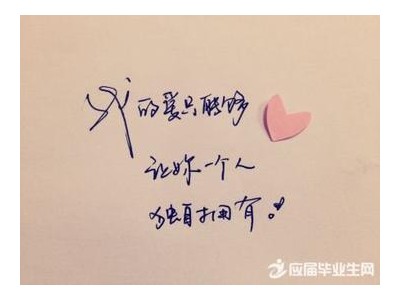 我的爱只能够
让你一个人
独自拥有。
应届毕业生网